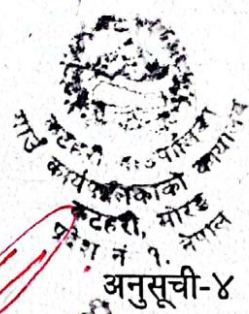 कटहरी गाउँपालिका
गाउँ कार्यपालिकाको कार्यालय
कटहरी, मोरङ
प्रदेश नं. १, नेपाल
अनुसूची-४